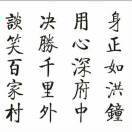 身正如洪鐘
用心深府中
決勝千里外
談笑百家村